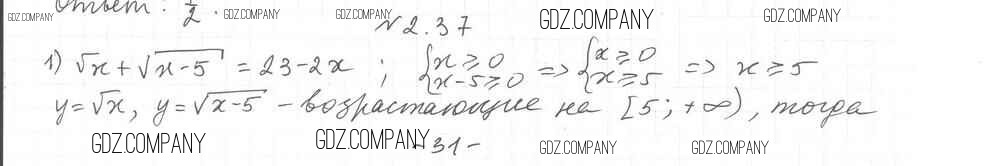 Ответ: 1/2.
GDZ.COMPANY GDZ.COMPANY GDZ.COMPANY GDZ.COMPANY GDZ.COMPANY
№2.37
1) √x + √x-5 = 23-2x ; {x ≥ 0 x-5 ≥ 0 => {x ≥ 0 x ≥ 5 => x ≥ 5
y=√x, y=√x-5 - возрастающие на [5; +∞), тогда
GDZ.COMPANY GDZ.COMPANY GDZ.COMPANY GDZ.COMPANY
-31-